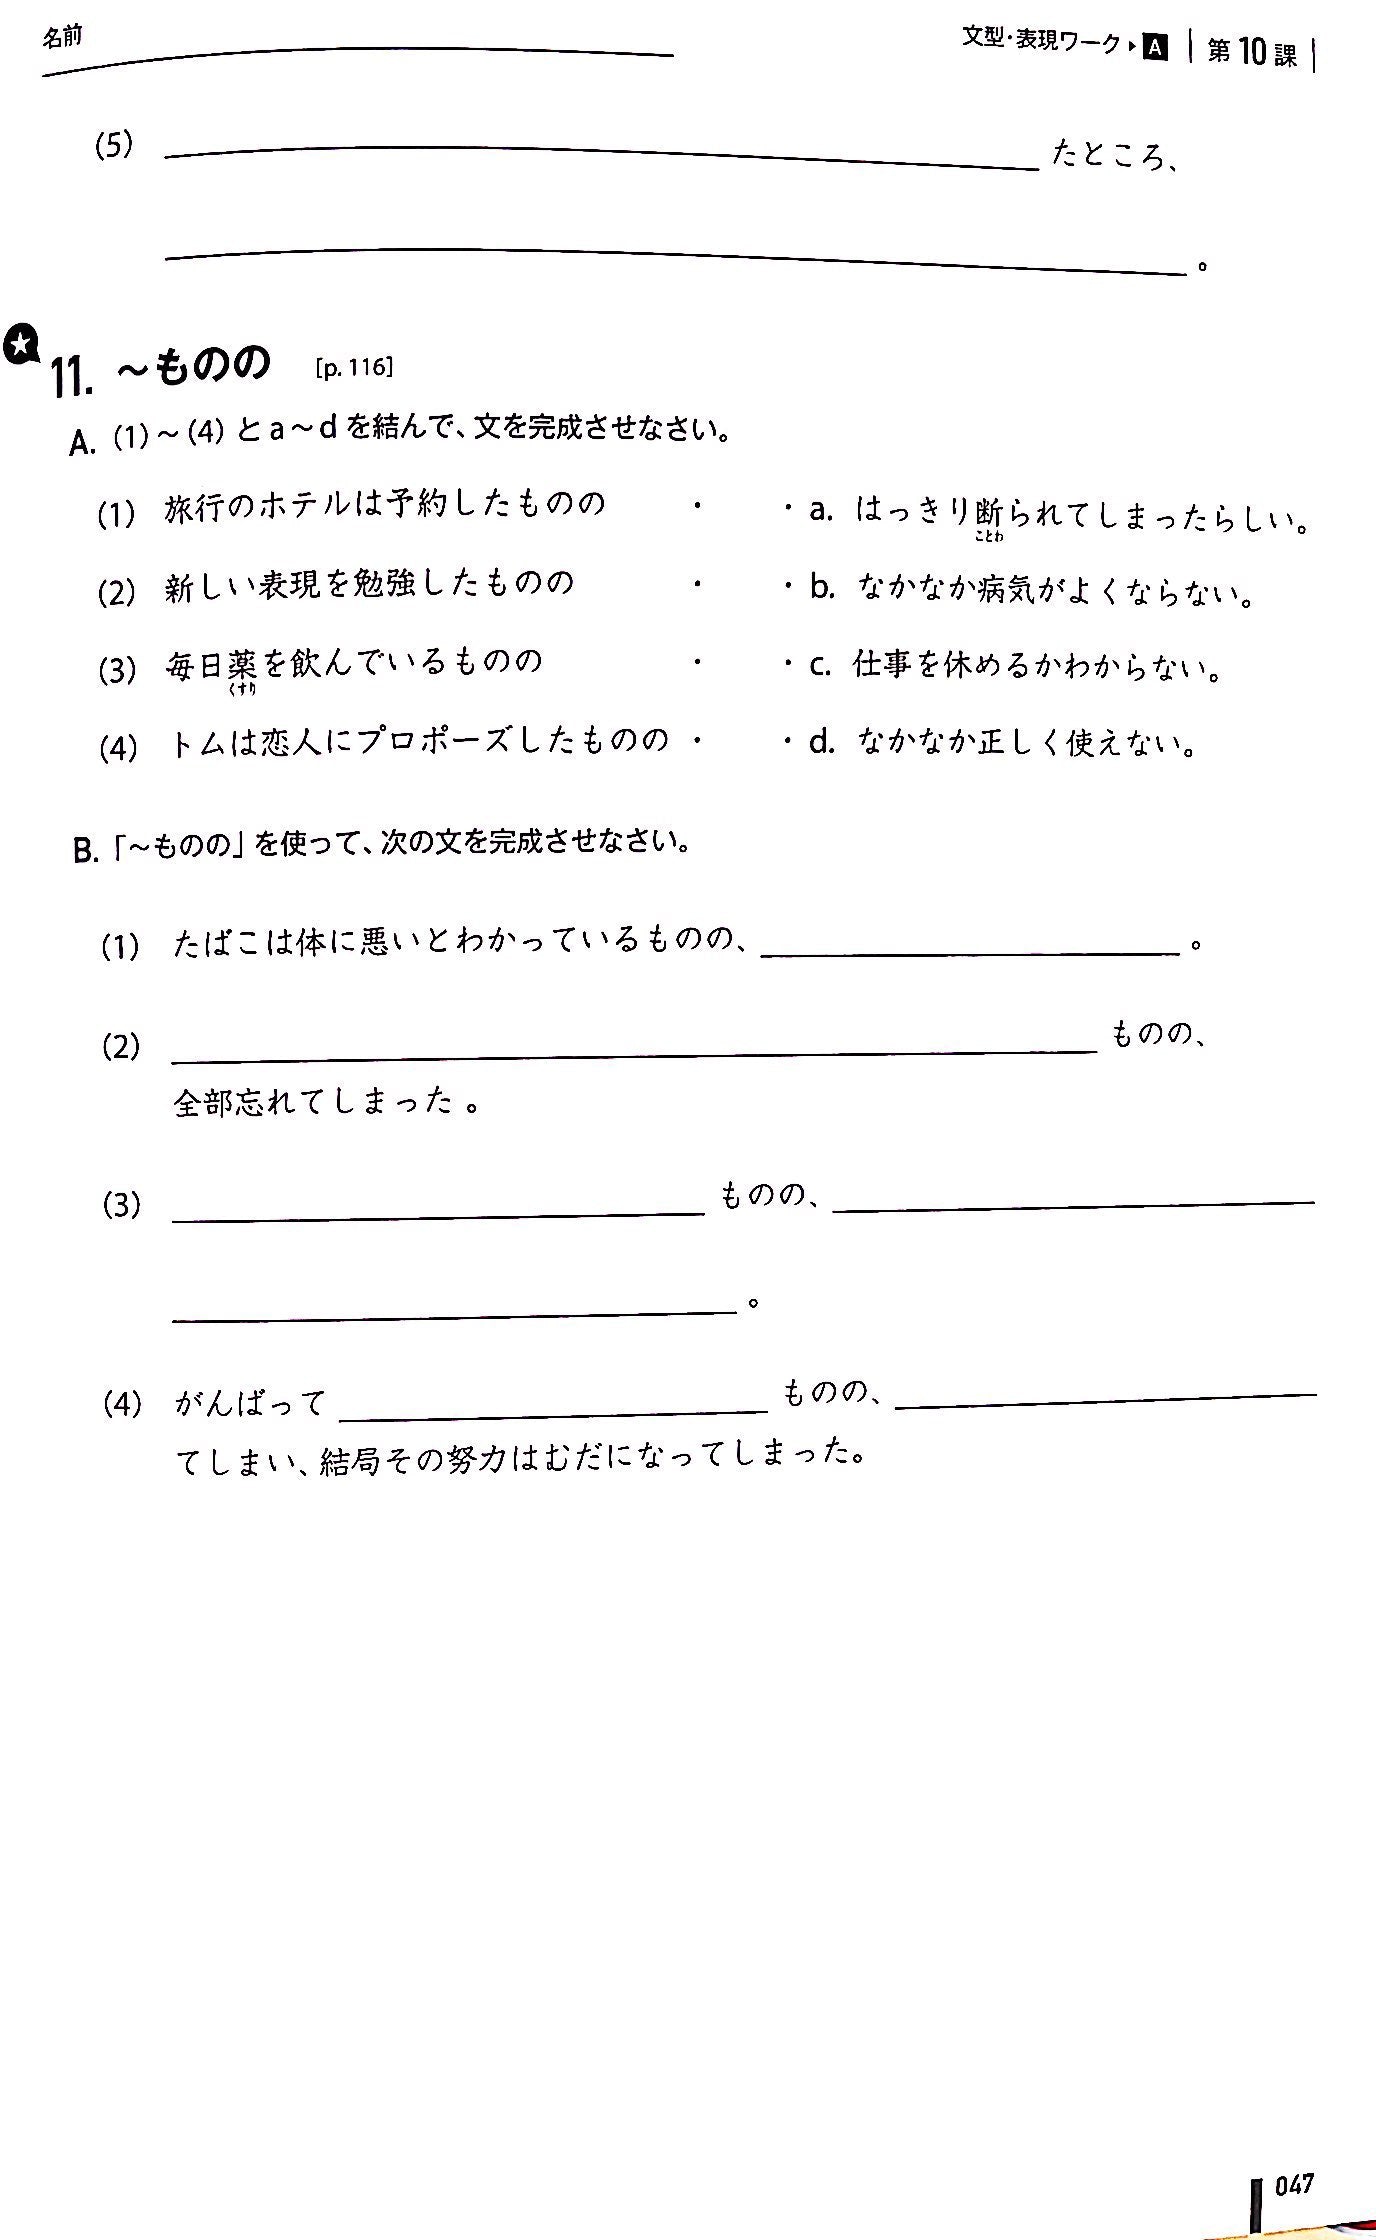 名前
文型・表現ワーク▶A 第10課
(5) たところ、
。
★
11. ～ものの [p. 116]
A. (1)～(4) と a～d を結んで、文を完成させなさい。
(1) 旅行のホテルは予約したものの ・ ・a. はっきり断られてしまったらしい。
ことわ
(2) 新しい表現を勉強したものの ・ ・b. なかなか病気がよくならない。
(3) 毎日薬を飲んでいるものの ・ ・c. 仕事を休めるかわからない。
くすり
(4) トムは恋人にプロポーズしたものの ・ ・d. なかなか正しく使えない。
B.「～ものの」を使って、次の文を完成させなさい。
(1) たばこは体に悪いとわかっているものの、 。
(2) ものの、
全部忘れてしまった。
(3) ものの、
。
(4) がんばって ものの、
てしまい、結局その努力はむだになってしまった。
047